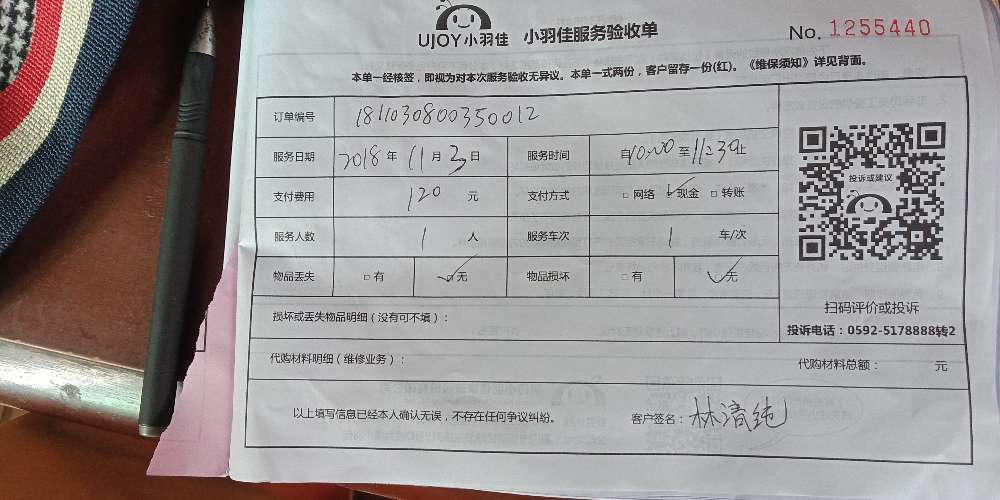 UJOY小羽佳 小羽佳服务验收单 No. 1255440
本单一经核签，即视为对本次服务验收无异议。本单一式两份，客户留存一份(红)。《维保须知》详见背面。
订单编号 1811030800350012
服务日期 2018年11月3日 服务时间 自10:00至11:30止
支付费用 120元 支付方式 □网络 ☑现金 □转账
服务人数 1人 服务车次 1车/次
物品丢失 □有 ☑无 物品损坏 □有 ☑无
投诉或建议
扫码评价或投诉
投诉电话：0592-5178888转2
损坏或丢失物品明细（没有可不填）：
代购材料明细（维修业务）： 代购材料总额： 元
以上填写信息已经本人确认无误，不存在任何争议纠纷。 客户签名：林清纯